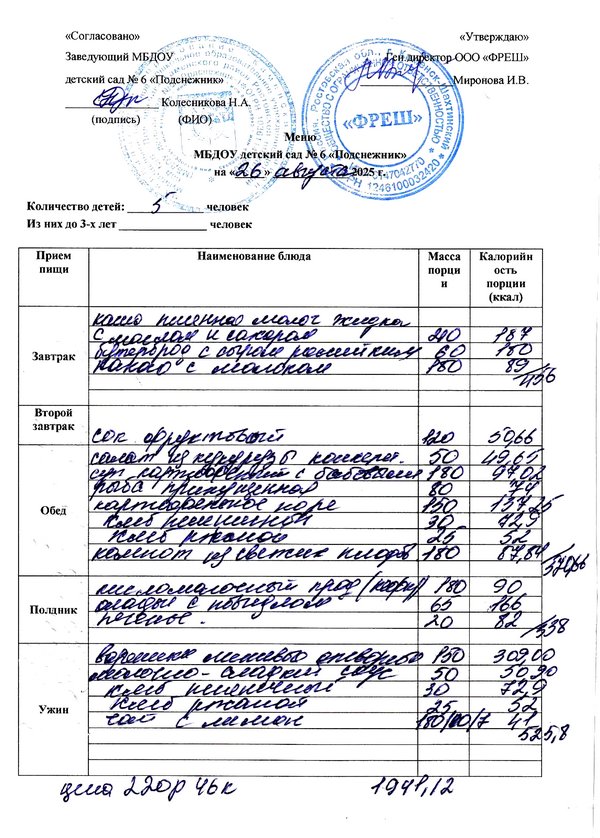 «Согласовано» «Утверждаю»
Заведующий МБДОУ Ген директор ООО «ФРЕШ»
детский сад № 6 «Подснежник» Миронова И.В.
Колесникова Н.А.
(подпись) (ФИО)
«ФРЕШ»
Меню
МБДОУ детский сад № 6 «Подснежник»
на «26» августа 2025 г.
Количество детей: 5 человек
Из них до 3-х лет человек
Прием пищи Наименование блюда Масса порции Калорийность порции (ккал)
Завтрак
каша пшенная молоч жидкая
с маслом и сахаром 210 187
бутерброд с сыром российским 60 180
какао с молоком 180 89
456
Второй завтрак
сок фруктовый 120 50,66
Обед
салат из кукурузы консерв. 50 49,65
суп картофельный с бобовыми 180 97,02
рыба припущенная 80 74
картофельное пюре 150 137,25
хлеб пшеничный 30 72,9
хлеб ржаной 25 52
компот из свежих плодов 180 87,84
570,66
Полдник
кисломолочный прод (кефир) 180 90
оладьи с повидлом 65 166
печенье. 20 82
338
Ужин
вареники ленивые отварные 150 309,00
молочно-сладкий соус 50 50,90
хлеб пшеничный 30 72,9
хлеб ржаной 25 52
чай с лимон 180/10/7 41
525,8
цена 220р 46к 1941,12